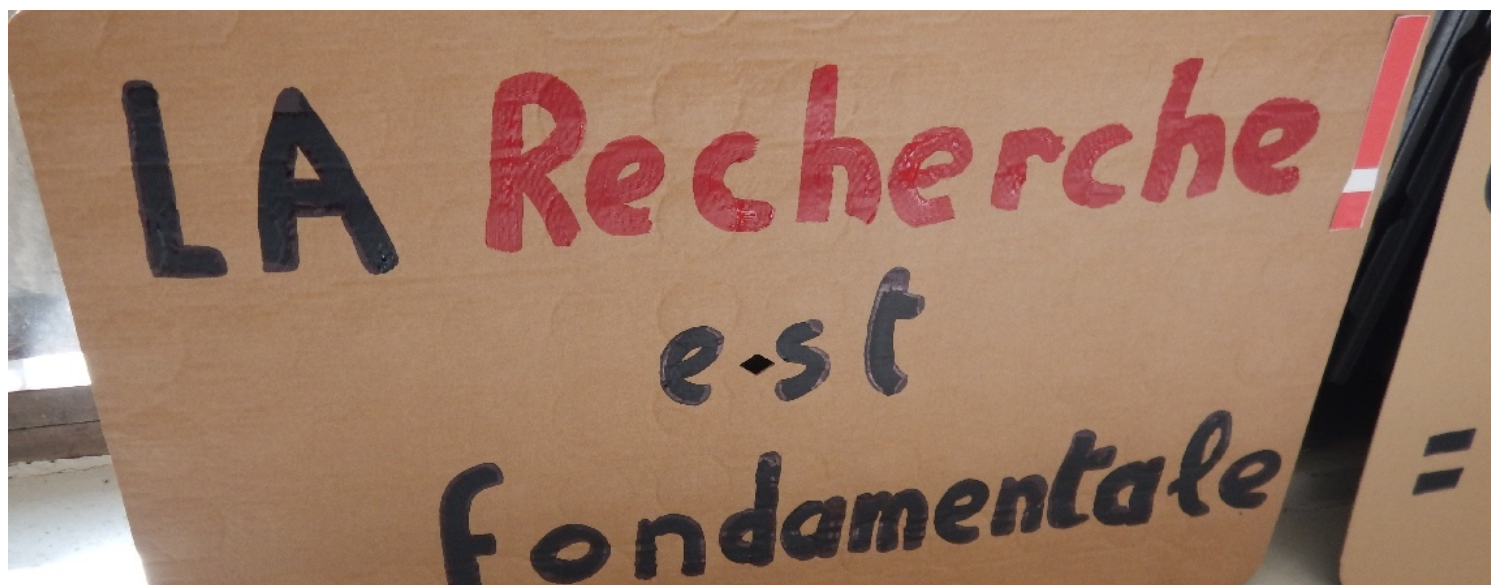 LA Recherche
est
fondamentale
=